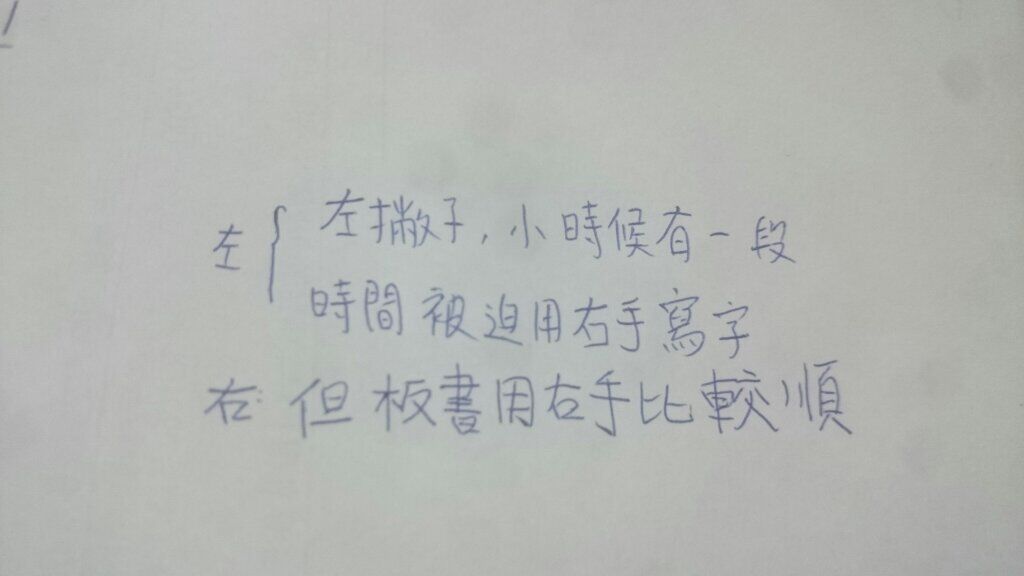 左{左撇子,小時候有一段
時間被迫用右手寫字
右:但板書用右手比較順